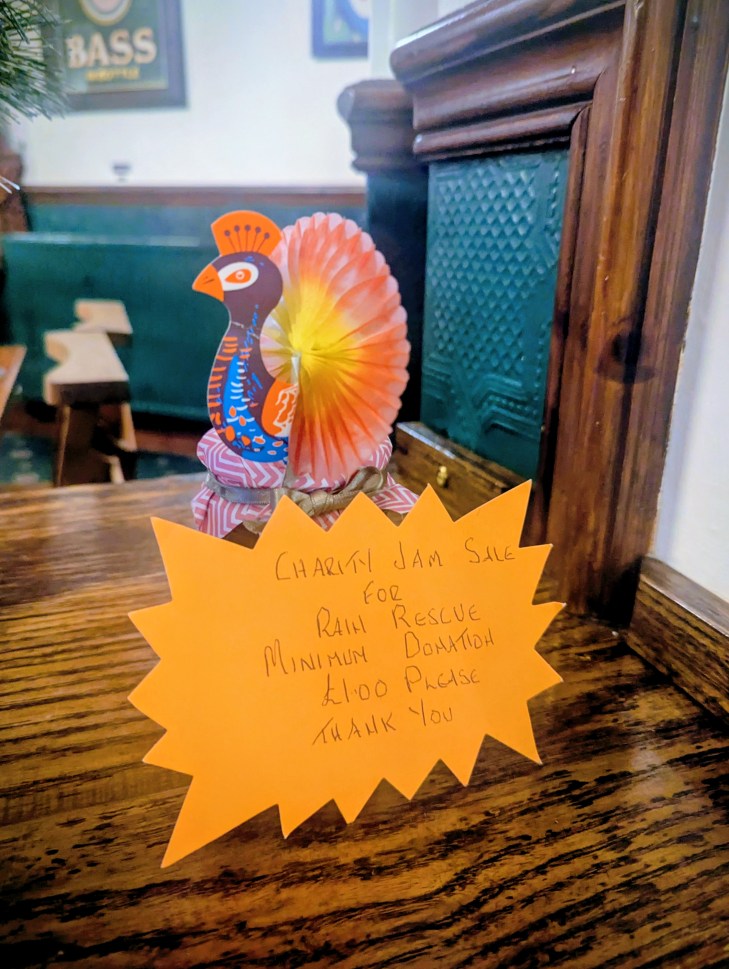 BASS
CHARITY JAM SALE
FOR
RAIN RESCUE
MINIMUM DONATION
£1.00 PLEASE
THANK YOU